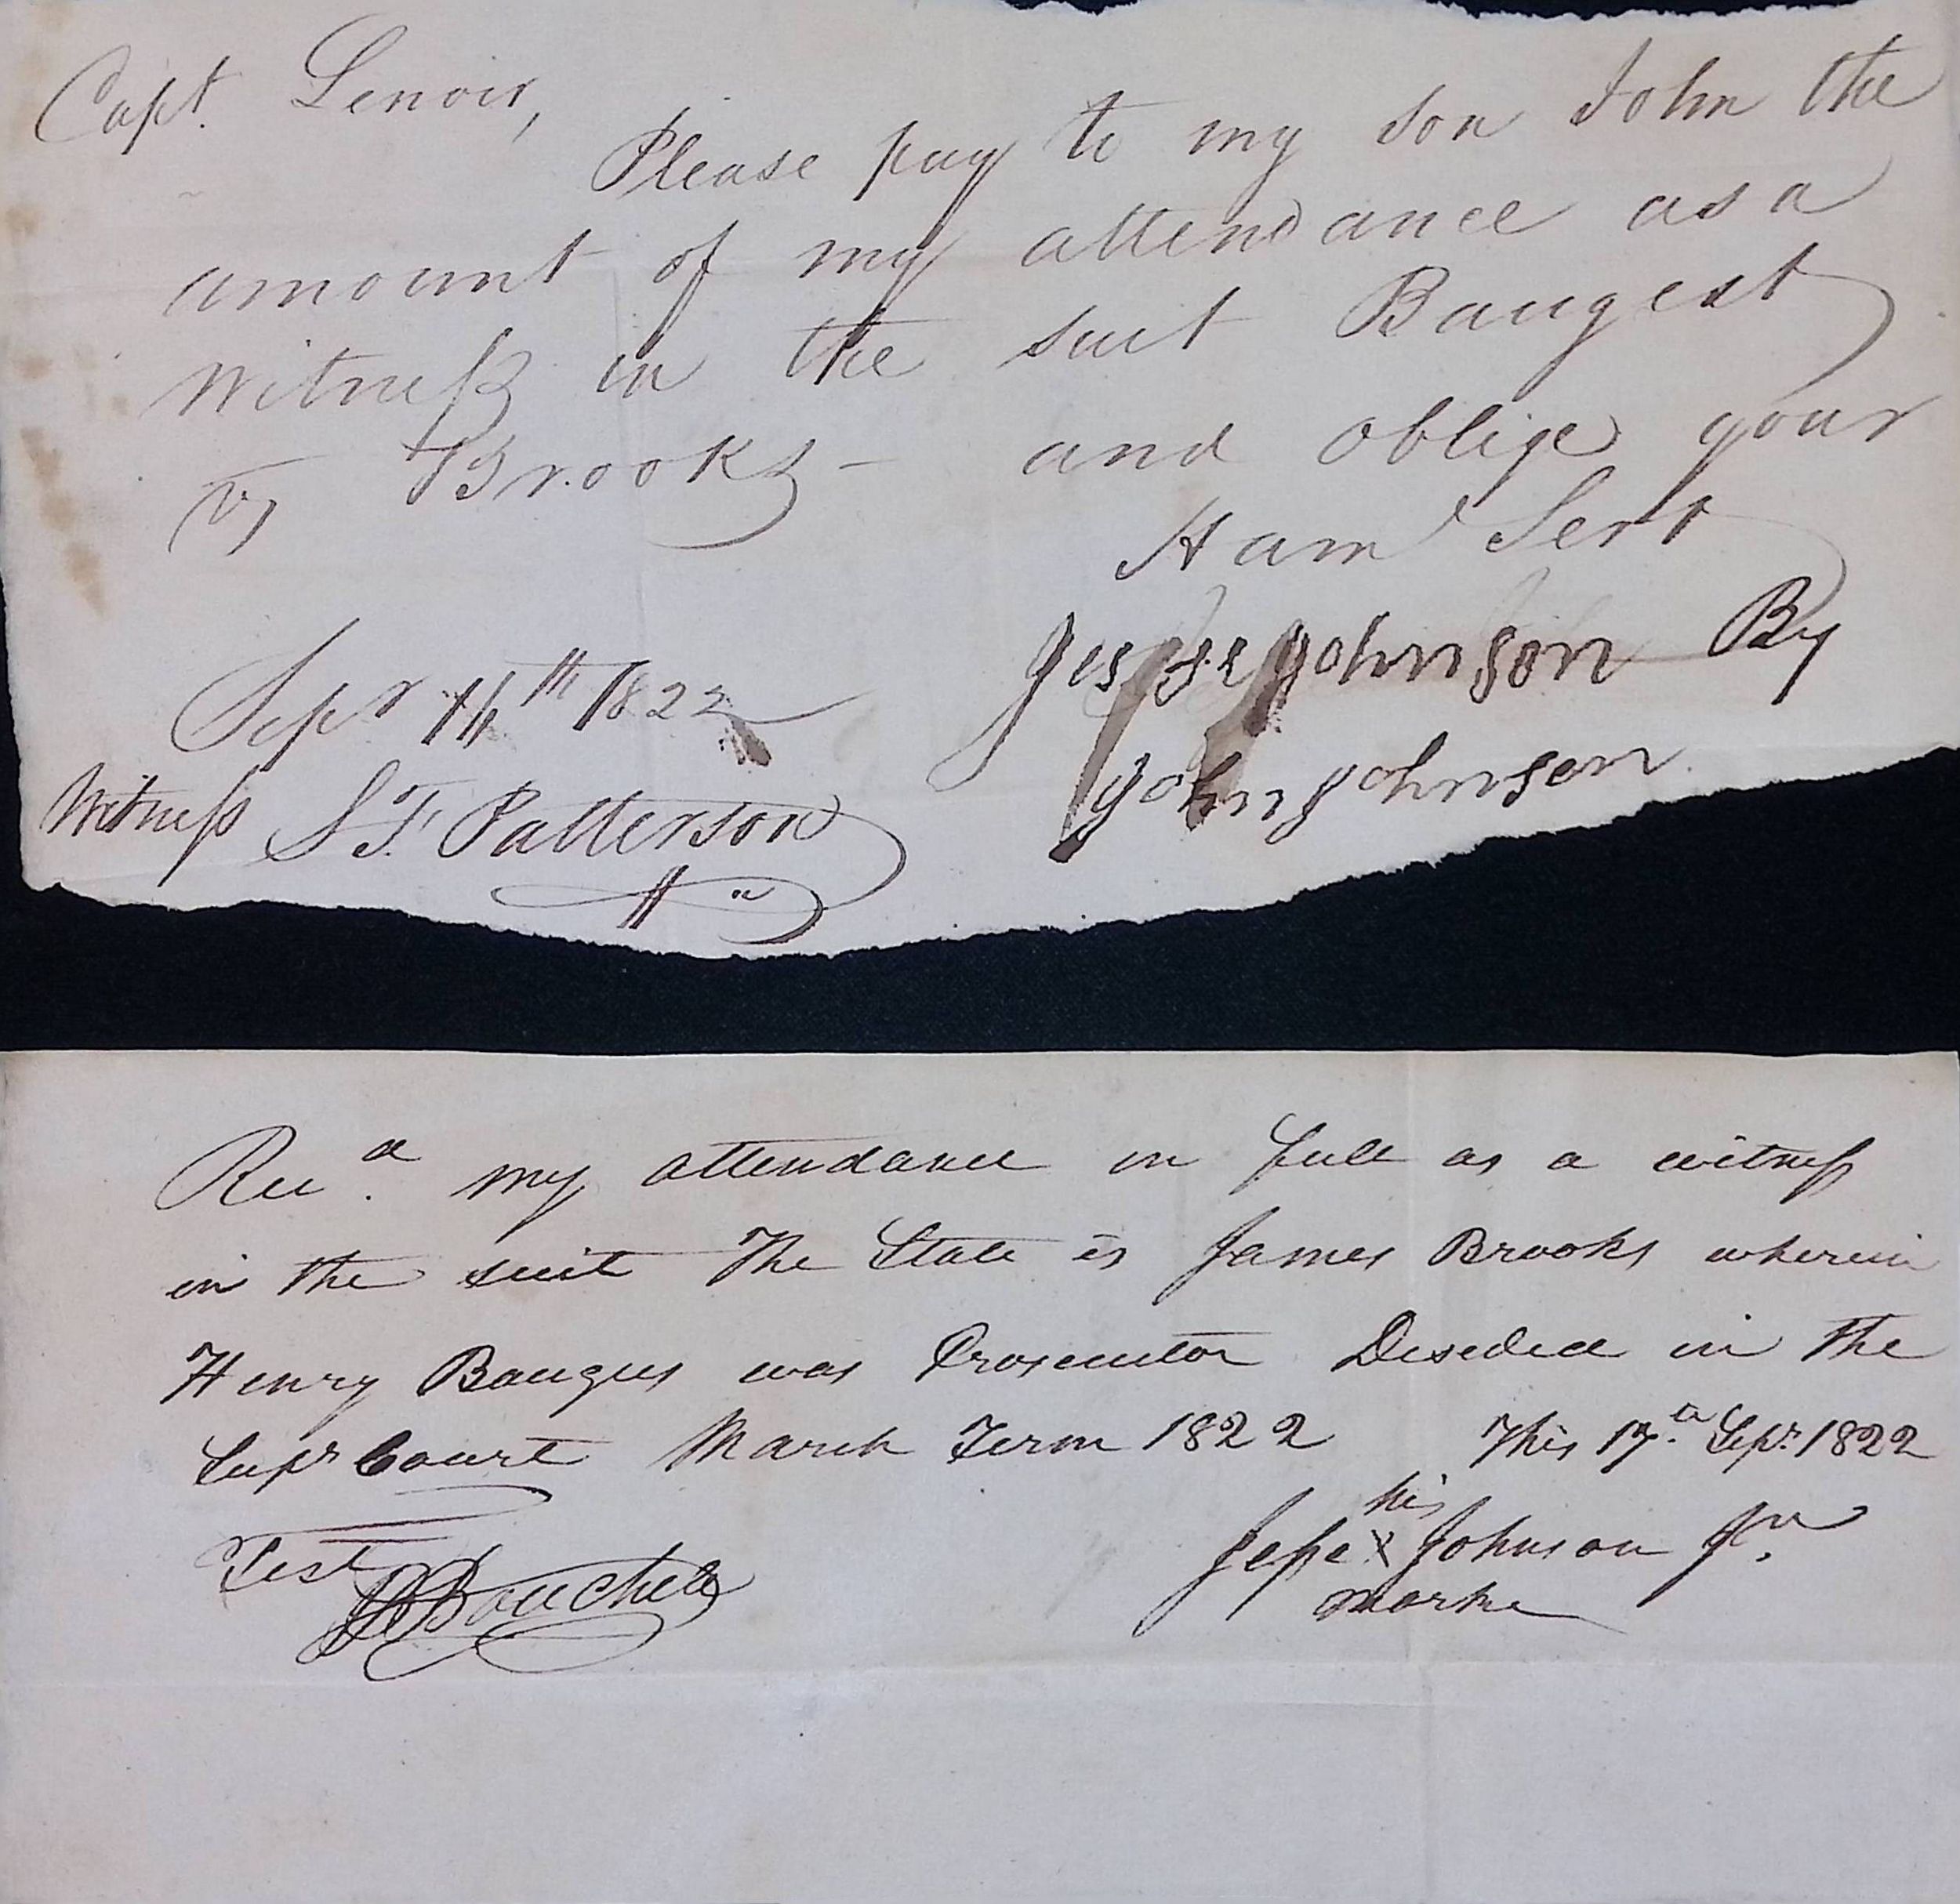 Capt. Lenoir,
Please pay to my son John the
amount of my attendance as a
Witness in the suit Baugest
vs Brooks – and oblige your
Hum Servt
Jessse Johnson By
John Johnson
Sepr 14th 1822
Witness S. F. Patterson
Recd. my attendance in full as a witness
in the suit The State vs James Brooks wherein
Henry Baugus was Prosecutor Deseded in the
Supr Court March Term 1822 This 17th Sepr. 1822
his
Jesse X Johnson Jr.
marke
Test
Bouchelle